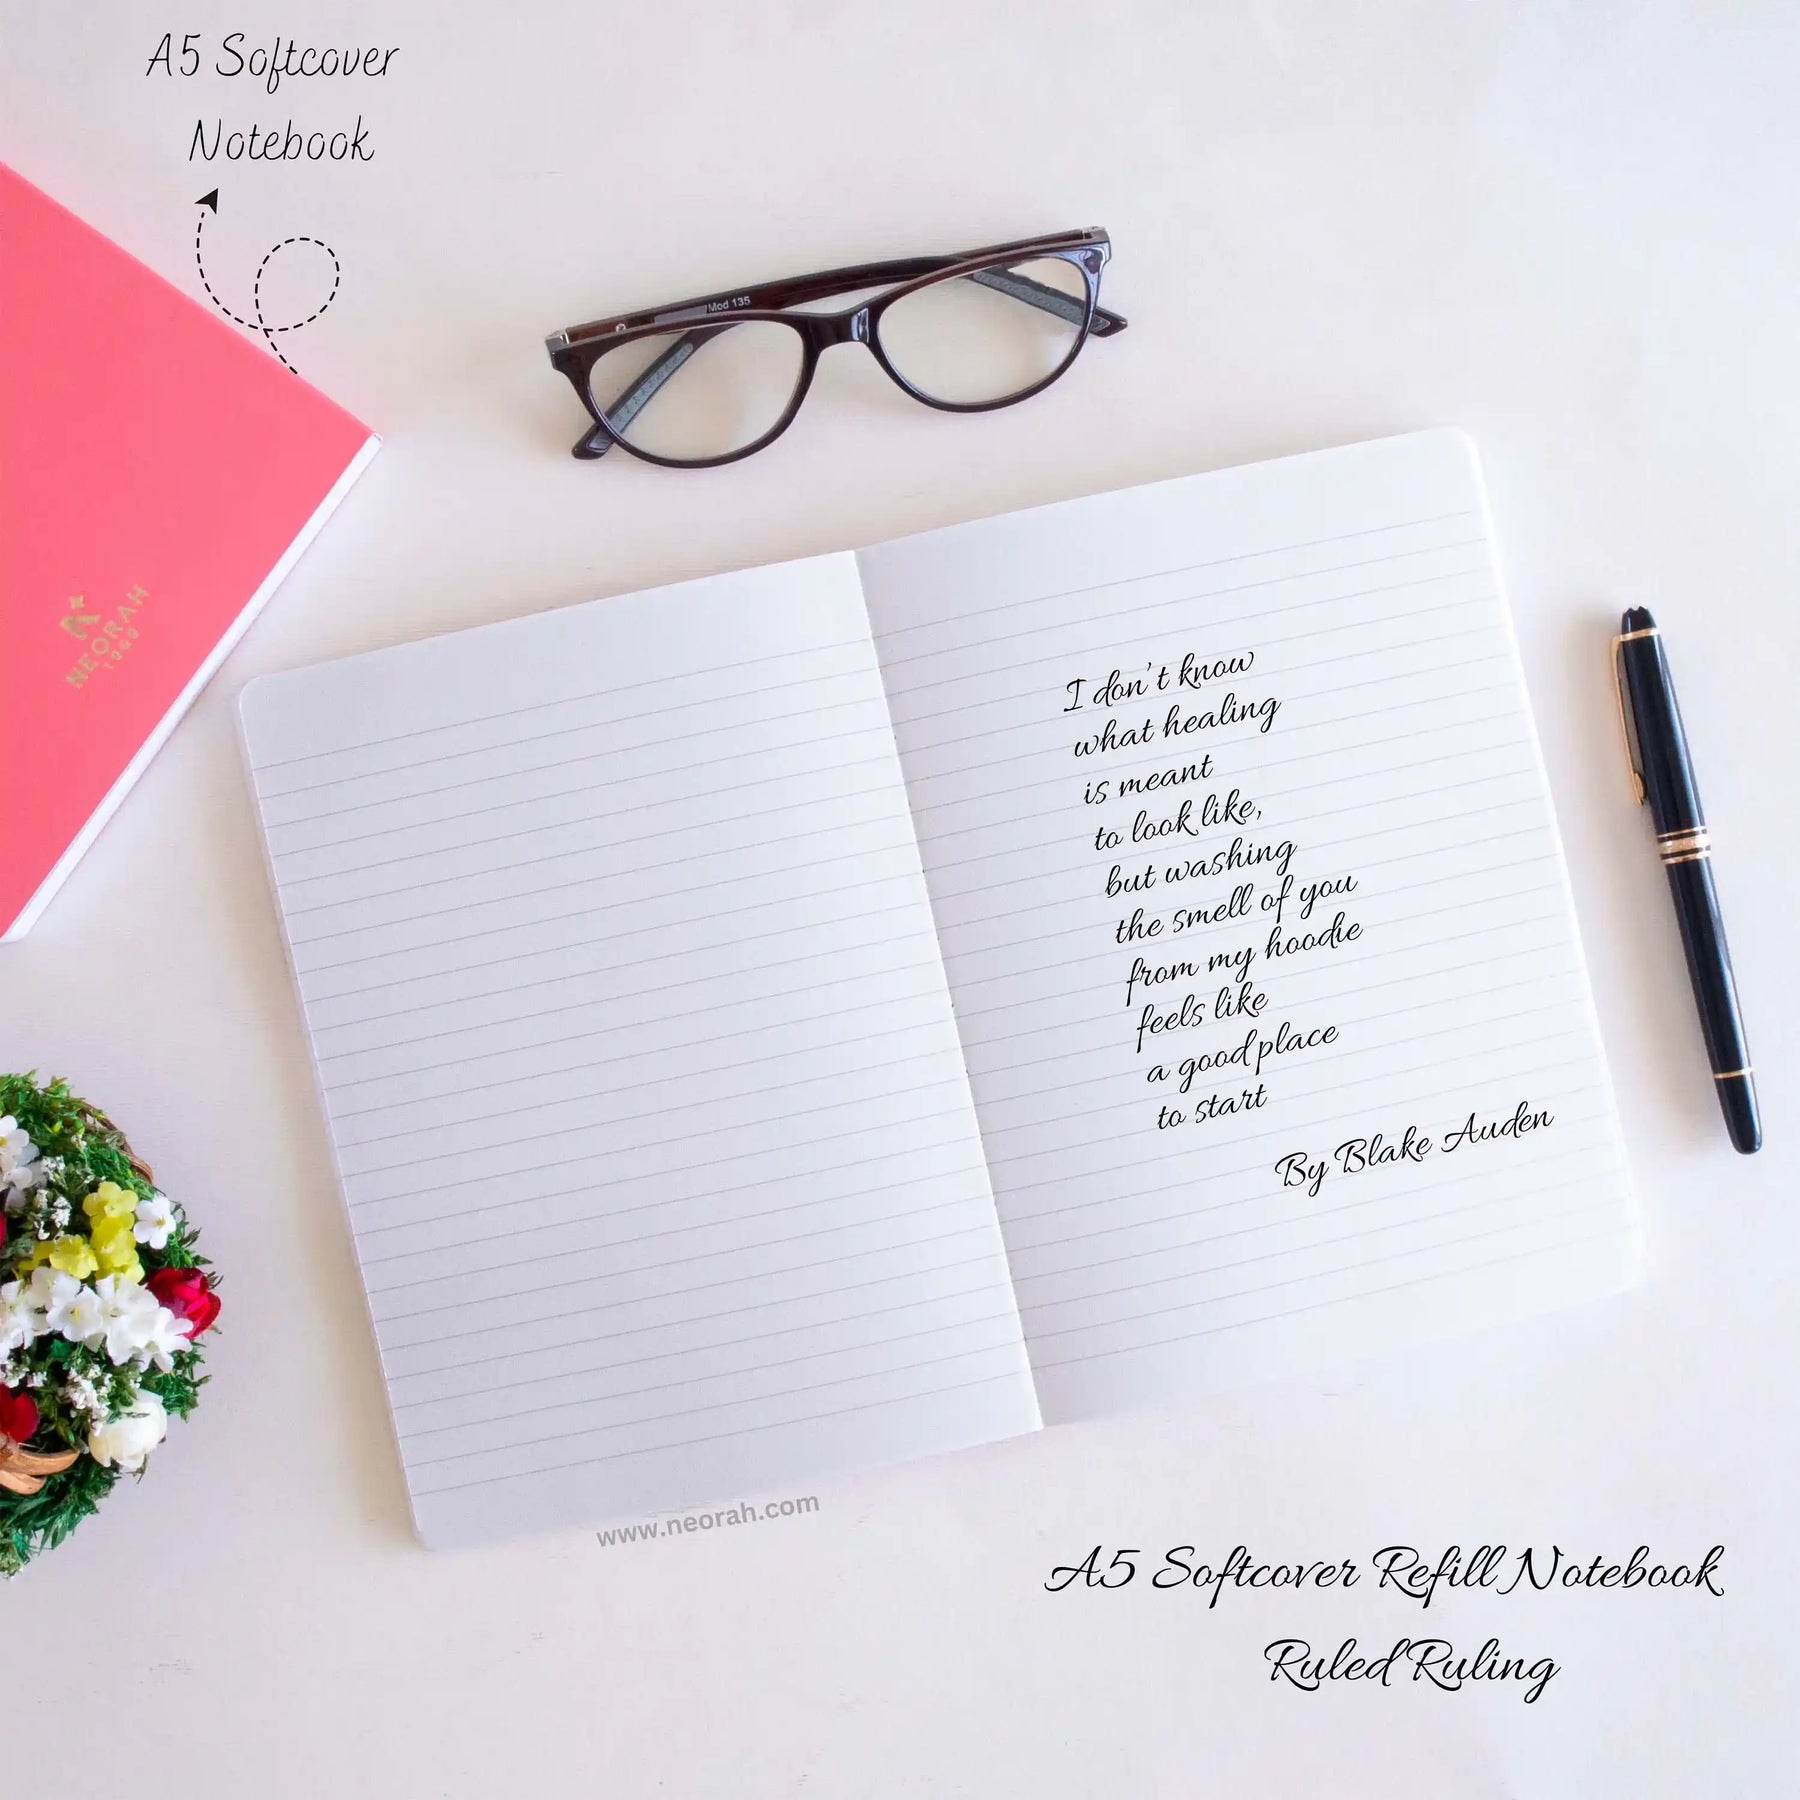 A5 Softcover
Notebook
Mod 135
NEORAH
1960
I don't know
what healing
is meant
to look like,
but washing
the smell of you
from my hoodie
feels like
a good place
to start
By Blake Auden
www.neorah.com
A5 Softcover Refill Notebook
Ruled Ruling